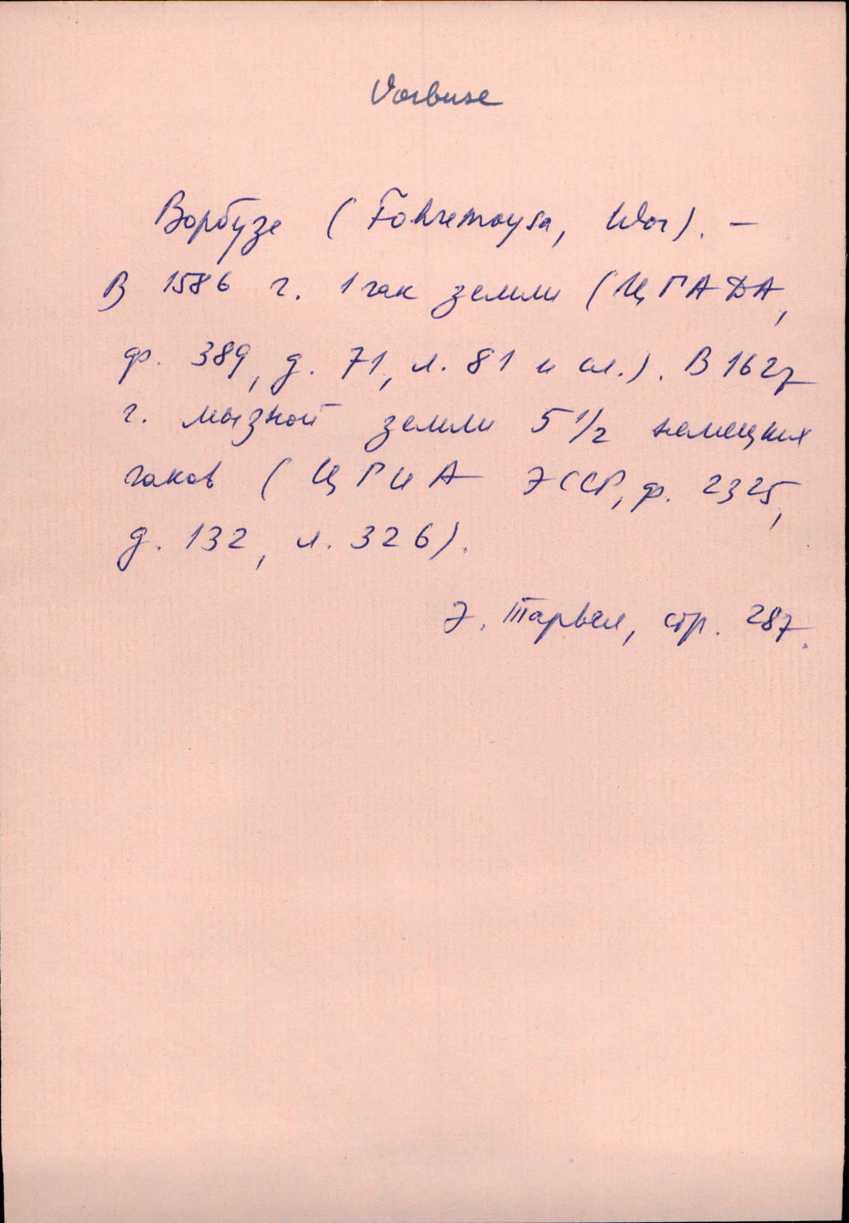 Vorbuse
Ворбузе (Fohremoysa, Wor). —
В 1586 г. 1 гак земли (ЦГАДА,
ф. 389, д. 71, л. 81 и сл.). В 1627
г. мызной земли 5 1/2 немецких
гаков (ЦГИА ЭССР, ф. 2325,
д. 132, л. 326).
Э. Тарвел, стр. 287.